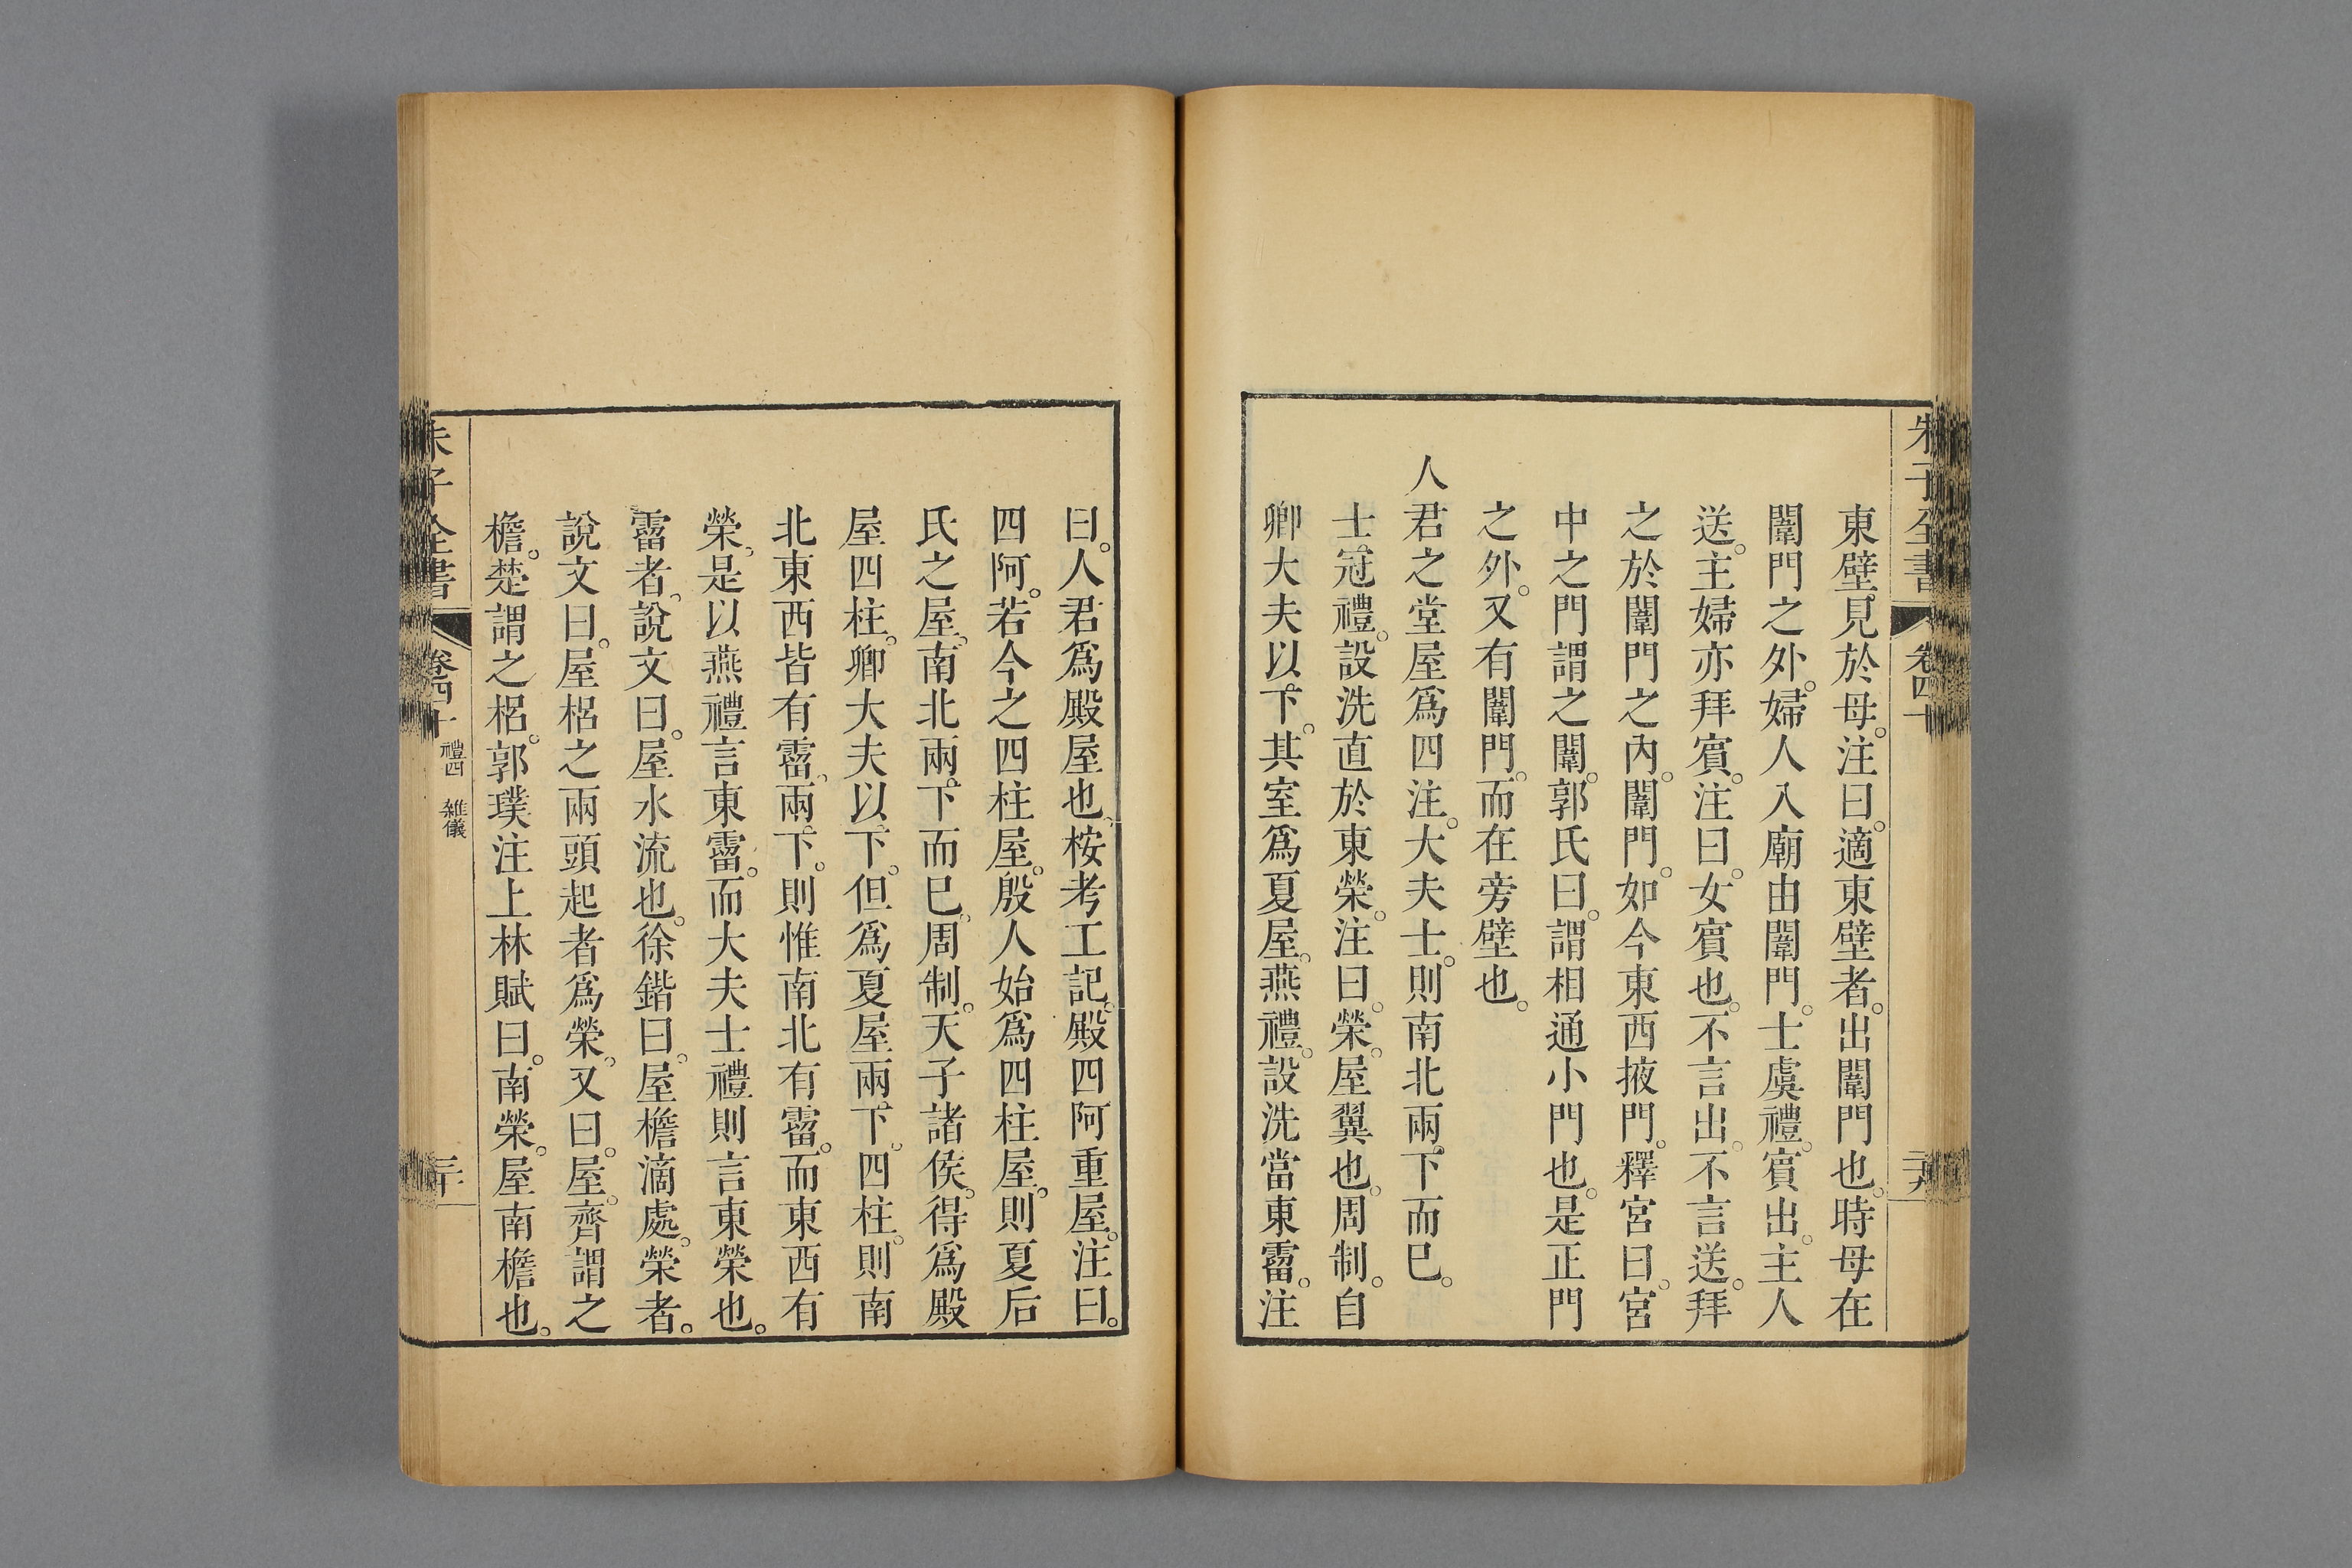 朱子全書 卷四十
二十九
東壁見於母。注曰。適東壁者。出闈門也。時母在
闈門之外。婦人入廟由闈門。士虞禮。賓出。主人
送。主婦亦拜賓。注曰。女賓也。不言出。不言送。拜
之於闈門之內。闈門。如今東西掖門。釋宮曰。宮
中之門謂之闈。郭氏曰。謂相通小門也。是正門
之外。又有闈門。而在旁壁也。
人君之堂屋爲四注。大夫士。則南北兩下而已。
士冠禮。設洗直於東榮。注曰。榮。屋翼也。周制。自
卿大夫以下。其室爲夏屋。燕禮。設洗當東霤。注
曰。人君爲殿屋也。桉考工記。殿四阿重屋。注曰。
四阿。若今之四柱屋。殷人始爲四柱屋。則夏后
氏之屋。南北兩下而已。周制。天子諸侯。得爲殿
屋四柱。卿大夫以下。但爲夏屋兩下。四柱。則南
北東西皆有霤。兩下。則惟南北有霤。而東西有
榮。是以燕禮言東霤。而大夫士禮則言東榮也。
霤者。說文曰。屋水流也。徐鍇曰。屋檐滴處。榮者。
說文曰。屋梠之兩頭起者爲榮。又曰。屋。齊謂之
檐。楚謂之梠。郭璞注上林賦曰。南榮。屋南檐也。
朱子全書 卷四十 禮四 雜儀
三十